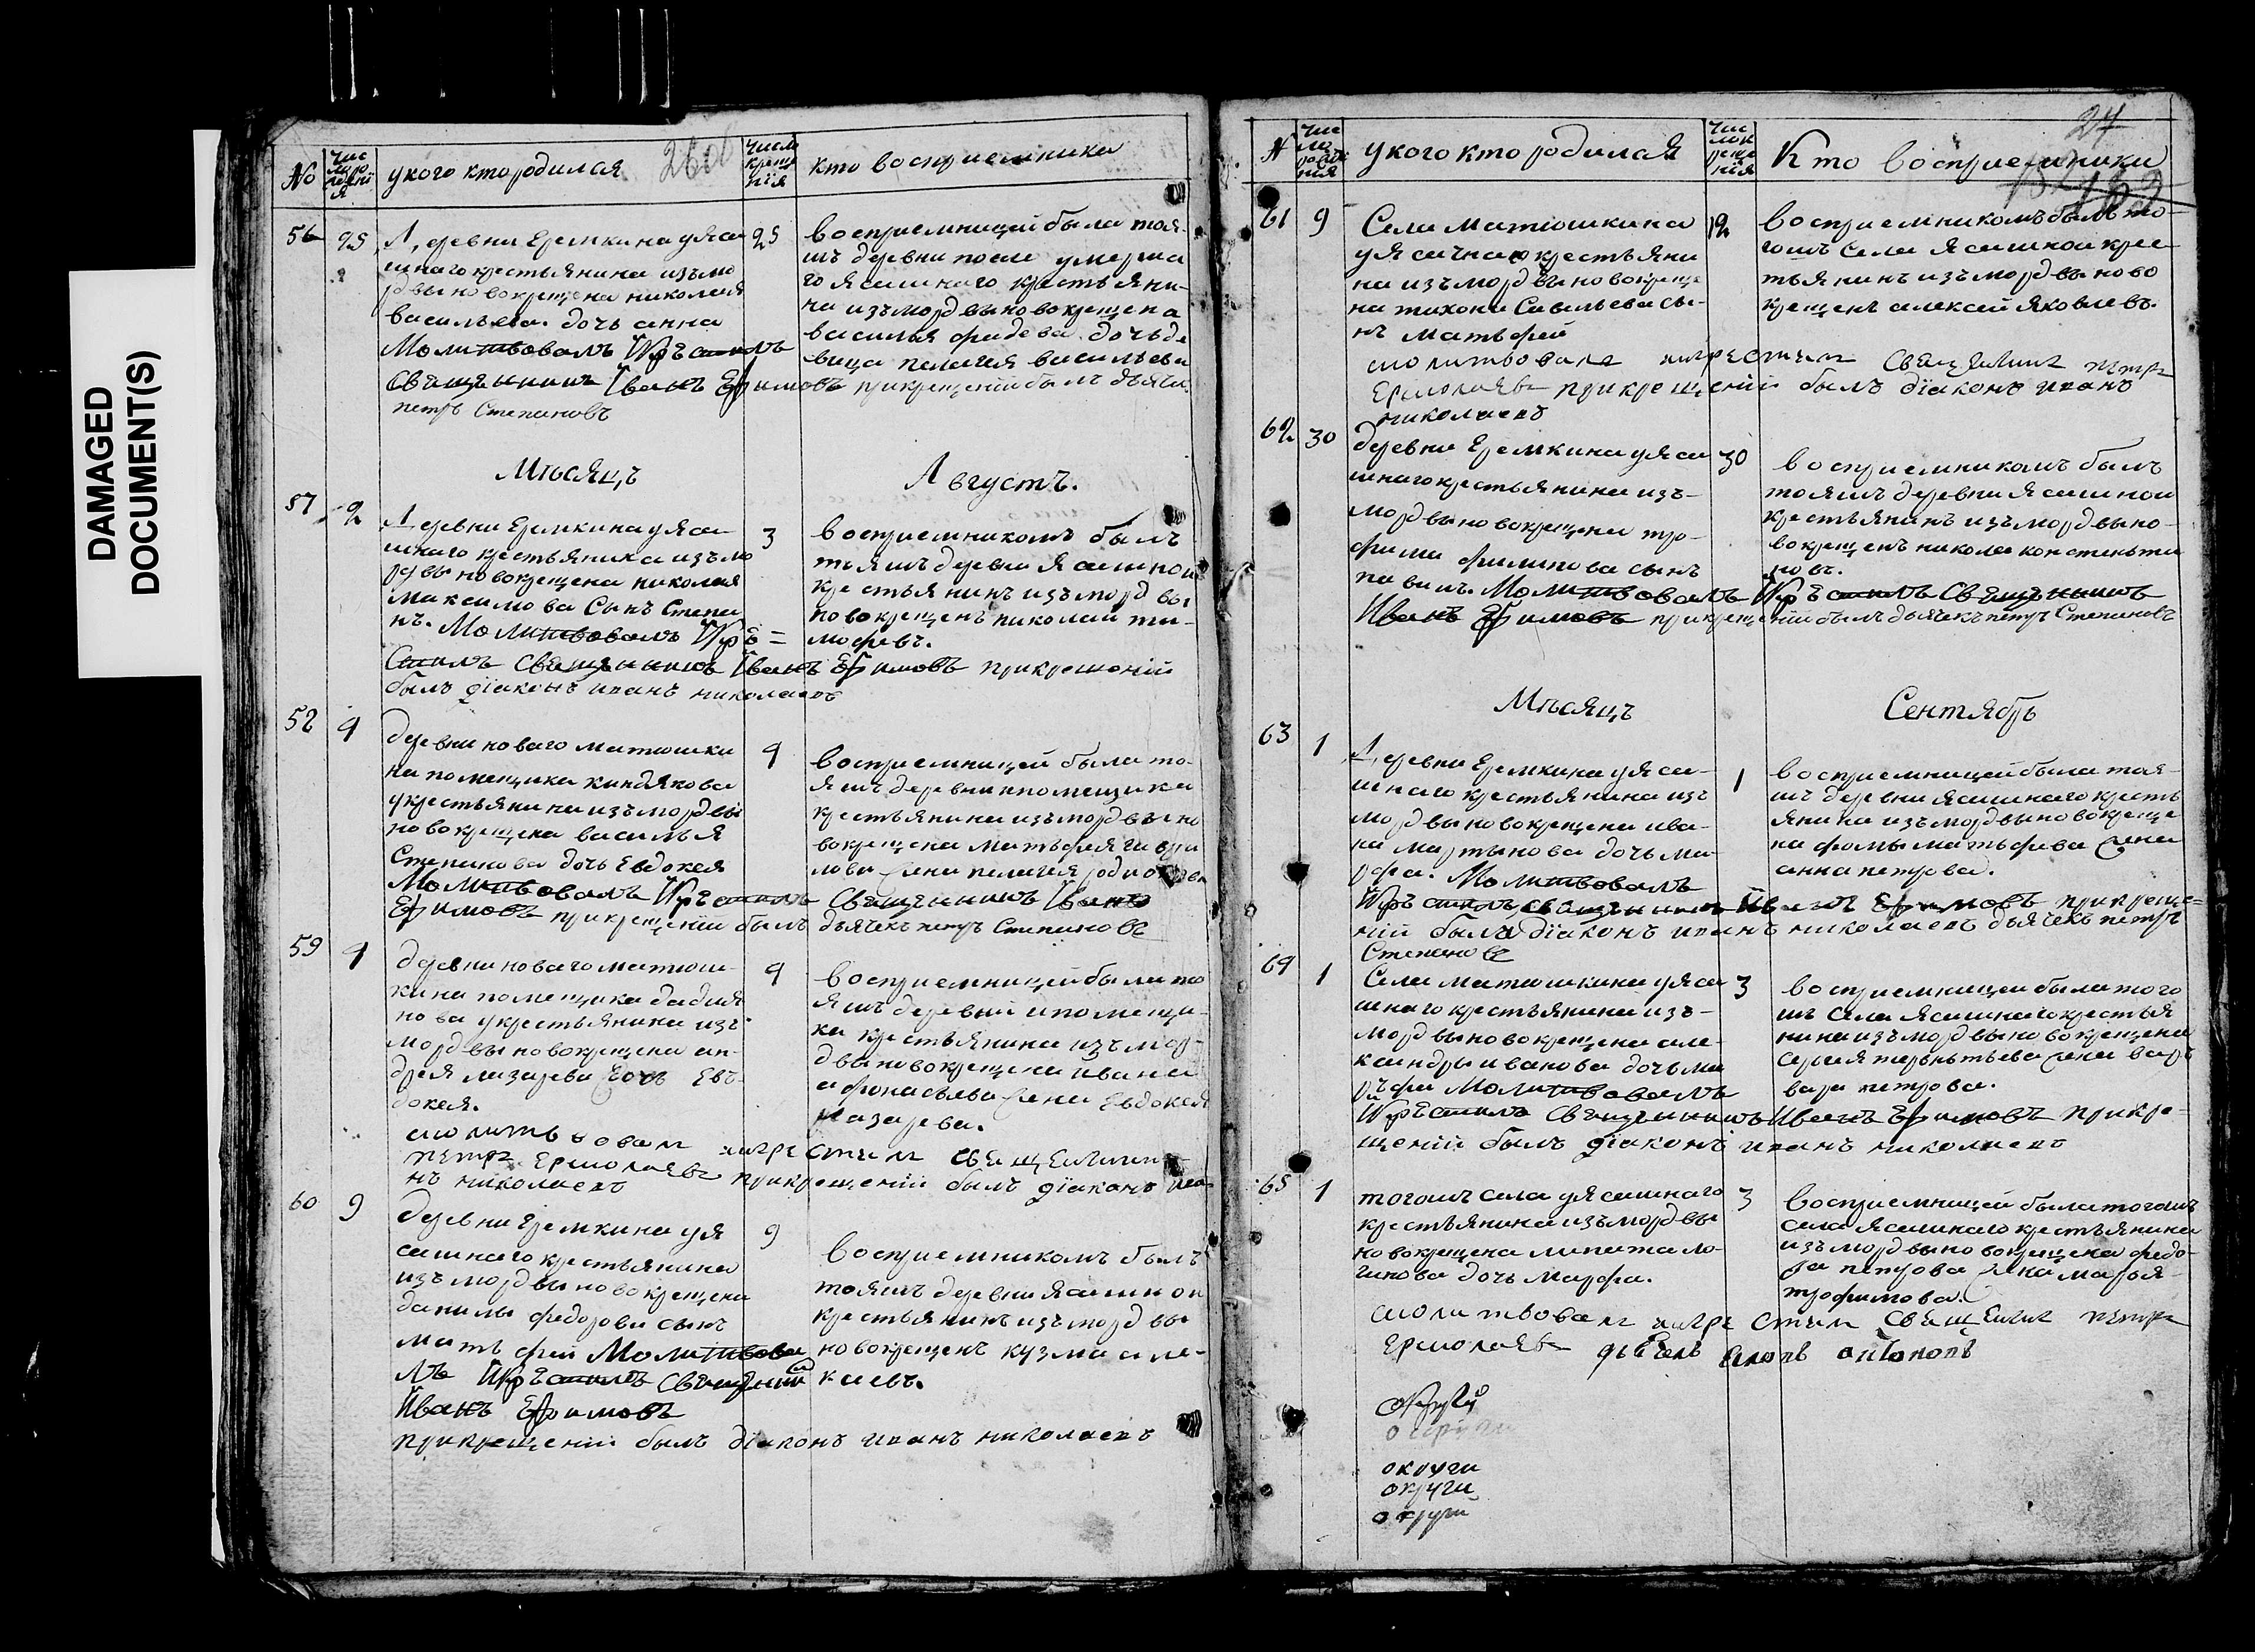 DAMAGED
DOCUMENT(S)
No
чис
ло ро
ждені
я
у кого кто родился
26об
число
креще
нія
кто восприемники
56
25
Деревни Еремкина у яса
шнаго крестьянина изъ мо
рдвы новокрещена николая
васильева. дочь анна
Молитвовалъ И крѣстилъ
Свящѣнникъ Иванъ Ефимовъ при крещеніи былъ дьячи.
петръ Степановъ
25
восприемницей была тоя-
жъ деревни после умерша
го ясашнаго крестьяни-
на изъ мордвы новокрещена
василья фадеева дочь де
вица пелагея васильева
Мѣсяцъ
Августъ.
57
2
Деревни Еремкина у яса-
шнаго крестьянина изъ мо
рдвы новокрещена николая
максимова Сынъ Степа
нъ. Молитвовалъ И крѣ=
стилъ Свящѣнникъ Иванъ Ефимовъ при крещеніи
былъ діаконъ иванъ николаевъ
3
восприемникомъ былъ
тояжъ деревни ясашнои
крестьянинъ изъ мордвы
новокрещенъ николай ти-
мофеевъ.
58
4
деревни новаго матюшки
на помещика киндякова
у крестьянина изъ мордвы
новокрещена василья
Степанова дочь Евдокея
Молитвовалъ И крѣстилъ Свящѣнникъ Иванъ
Ефимовъ при крещеніи былъ дьячекъ петръ Степановъ
4
восприемницей была то-
яжъ деревни и помещика
крестьянина изъ мордвы но
вокрещена матьфея гаври
лова жена пелагея родионова
59
4
деревни новаго матюш-
кина помещика дадия
нова у крестьянина изъ
мордвы новокрещена ан-
дрея лазарева дочь Евъ-
докея.
молитьвовалъ и крестилъ священникъ
петръ Ермолаевъ при крещеніи былъ діаконъ ива
нъ николаевъ
4
восприемницей была то
яжъ деревни и помещи-
ка крестьянина изъ мор-
двы новокрещена ивана
афонасьева жена Евдокея
Назарева.
60
9
деревни Еремкина у я
сашнаго крестьянина
изъ мордвы новокрещена
данилы федорова сынъ
матьфей Молитвова
лъ И крѣстилъ Свящѣнникъ
Иванъ Ефимовъ
при крещеніи былъ діаконъ иванъ николаевъ
9
восприемникомъ былъ
тояжъ деревни ясашнои
крестьянинъ изъ мордвы
новокрещенъ кузма але-
ксеевъ.
N
чис
ло
рожде
нія
у кого кто родился
чис
ло к
реще
нія
Кто восприемники
27
61
9
Села матюшкина
у ясачнаго крестьяни
на изъ мордвы новокреще
на тихона Савельева сы-
нъ матьфей
молитвовалъ и крестилъ Священникъ петръ
Ермолаевъ при крещеніи былъ діаконъ иванъ
николаевъ
12
восприемникомъ былъ то-
гожъ села ясашнои крес-
тьянинъ изъ мордвы ново
крещенъ алексей яковлевъ.
62
30
деревни Еремкина у яса
шнаго крестьянина изъ-
мордвы новокрещена тро-
фима филипова сынъ
павилъ. Молитвовалъ И крѣстилъ Свящѣнникъ
Иванъ Ефимовъ при крещеніи былъ дьячекъ петръ Степановъ
30
восприемникомъ былъ
тояжъ деревни ясашнои
крестьянинъ изъ мордвы но-
вокрещенъ никола констеньти
новъ.
Мѣсяцъ
Сентябрь
63
1
Деревни Еремкина у яса-
шнаго крестьянина изъ
мордвы новокрещена ива-
на мартынова дочь ма-
рфа. Молитвовалъ
И крѣстилъ свящѣнникъ Иванъ Ефимовъ при креще=
ніи былъ діаконъ иванъ николаевъ дьячекъ петръ
Степановъ
1
восприемницей была тоя-
жъ деревни ясашнаго кресть
янина изъ мордвы новокреще
на фомы матьфеева жена
анна петрова.
64
1
Села матюшкина у яса
шнаго крестьянина изъ-
мордвы новокрещена але-
ксандры иванова дочь ма
рьфа Молитвовалъ
И крѣстилъ Свящѣнникъ Иванъ Ефимовъ при кре-
щеніи былъ діаконъ иванъ николаевъ
3
восприемницей была того
жъ села ясашнаго крестья
нина изъ мордвы новокрещена
сергея терентьева жена варъ
вара петрова.
65
1
тогожъ села у ясашнаго
крестьянина изъ мордвы
новокрещена липата ло-
гинова дочь Марфа.
молитвовалъ и крестилъ Священникъ петръ
Ермолаевъ
3
восприемницей была тогожъ
села ясашнаго крестьянина
изъ мордвы новокрещена федо-
ра петрова жена марья
трофимова.
округи
округи
округи